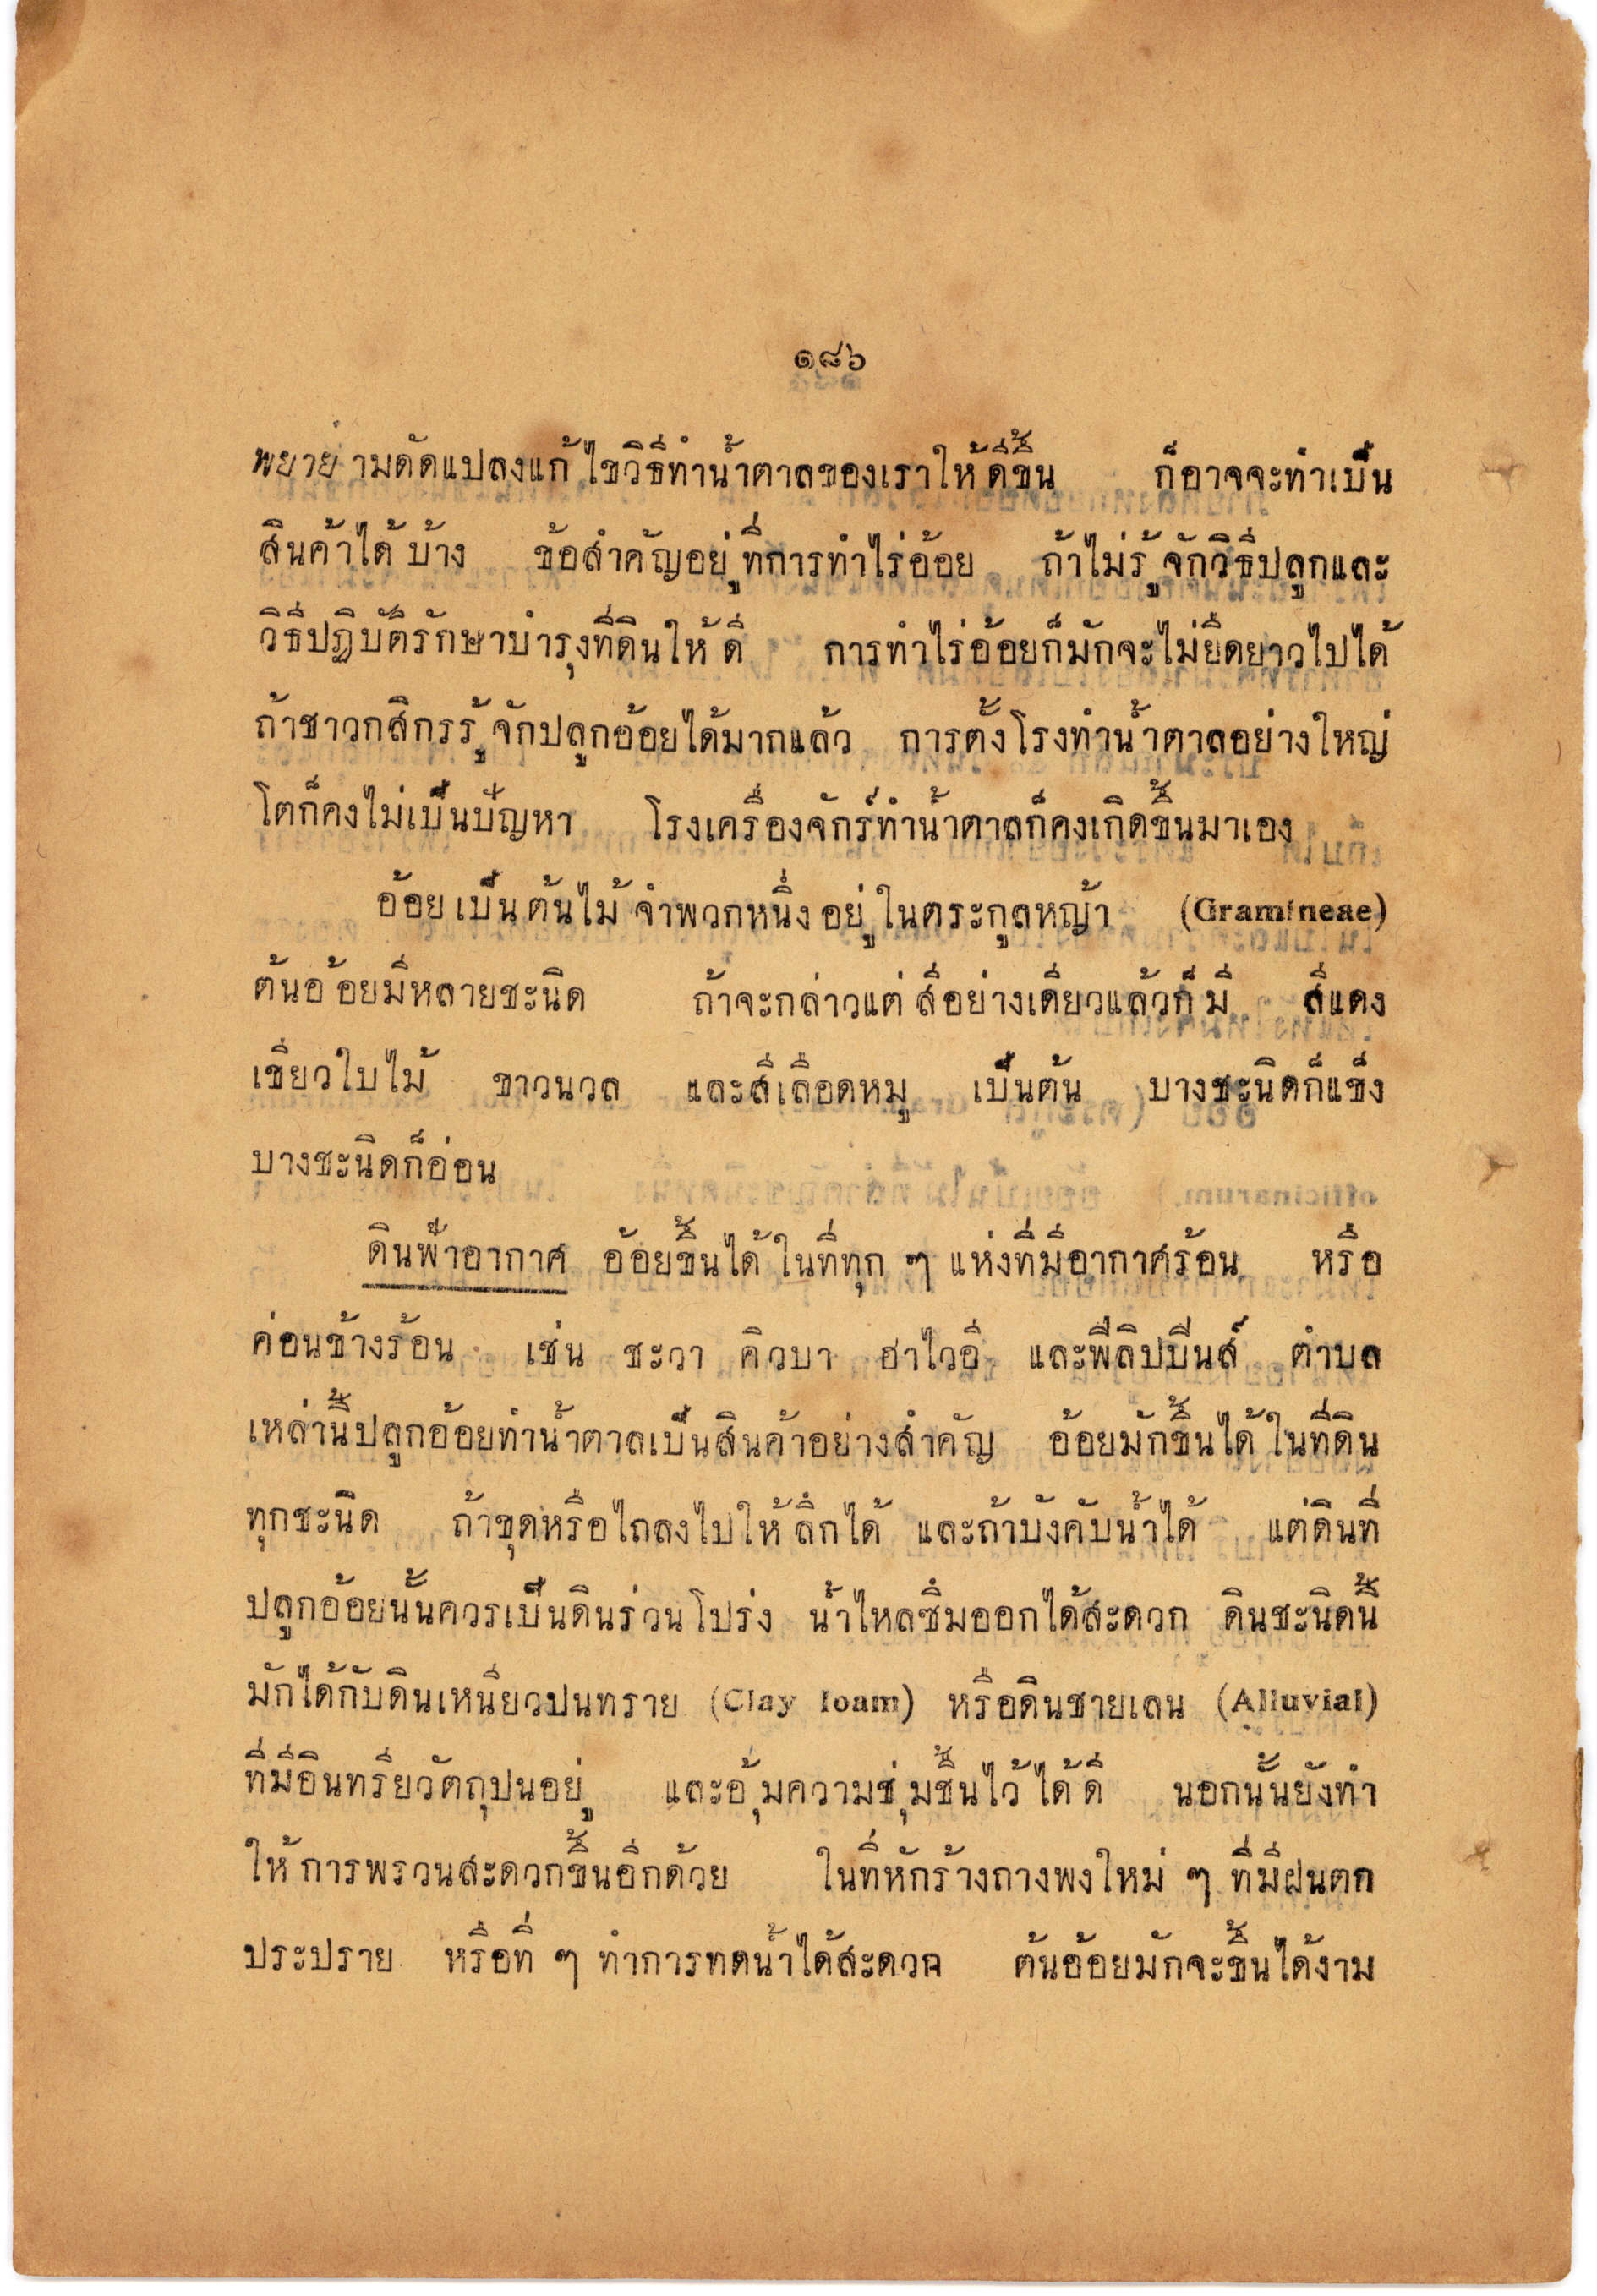 ๑๘๖
พยายามดัดแปลงแก้ไขวิธีทำน้ำตาลของเราให้ดีขึ้น ก็อาจจะทำเป็น
สินค้าได้บ้าง ข้อสำคัญอยู่ที่การทำไร่อ้อย ถ้าไม่รู้จักวิธีปลูกและ
วิธีปฏิบัติรักษาบำรุงที่ดินให้ดี การทำไร่อ้อยก็มักจะไม่ยืดยาวไปได้
ถ้าชาวกสิกรรู้จักปลูกอ้อยได้มากแล้ว การตั้งโรงทำน้ำตาลอย่างใหญ่
โตก็คงไม่เป็นปัญหา โรงเครื่องจักร์ทำน้ำตาลก็คงเกิดขึ้นมาเอง
อ้อยเป็นต้นไม้จำพวกหนึ่งอยู่ในตระกูลหญ้า (Gramineae)
ต้นอ้อยมีหลายชะนิด ถ้าจะกล่าวแต่สีอย่างเดียวแล้วก็มี สีแดง
เขียวใบไม้ ขาวนวล และสีเลือดหมู เป็นต้น บางชะนิดก็แข็ง
บางชะนิดก็อ่อน
ดินฟ้าอากาศ อ้อยขึ้นได้ในที่ทุก ๆ แห่งที่มีอากาศร้อน หรือ
ค่อนข้างร้อน เช่น ชะวา คิวบา ฮาไวอี และฟีลิปปีนส์ ตำบล
เหล่านี้ปลูกอ้อยทำน้ำตาลเป็นสินค้าอย่างสำคัญ อ้อยมักขึ้นได้ในที่ดิน
ทุกชะนิด ถ้าขุดหรือไถลงไปให้ลึกได้ และถ้าบังคับน้ำได้ แต่ดินที่
ปลูกอ้อยนั้นควรเป็นดินร่วนโปร่ง น้ำไหลซึมออกได้สะดวก ดินชะนิดนี้
มักได้กับดินเหนียวปนทราย (Clay loam) หรือดินชายเลน (Alluvial)
ที่มีอินทรียวัตถุปนอยู่ และอุ้มความชุ่มชื้นไว้ได้ดี นอกนั้นยังทำ
ให้การพรวนสะดวกขึ้นอีกด้วย ในที่หักร้างถางพงใหม่ ๆ ที่มีฝนตก
ประปราย หรือที่ ๆ ทำการทดน้ำได้สะดวก ต้นอ้อยมักจะขึ้นได้งาม